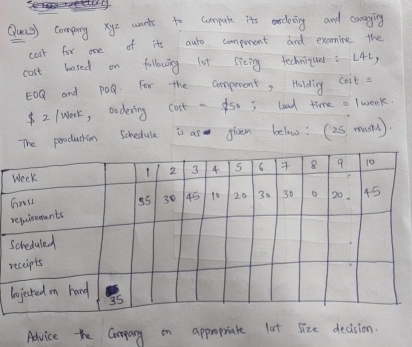 Ques) Company xyz wants to compute its ordering and carrying
cost for one of its auto component and examine the
cost based on following lot sizing techniques: L4L,
EOQ and POQ. For the component, Holding cost =
$ 2/week, ordering cost = $50; Lead time = 1 week.
The production schedule is as given below: (25 marks).
Week 1 2 3 4 5 6 7 8 9 10
Gross requirements 35 30 45 10 20 30 30 0 20 45
Scheduled receipts
Projected on hand 35
Advice the Company on appropriate lot size decision.